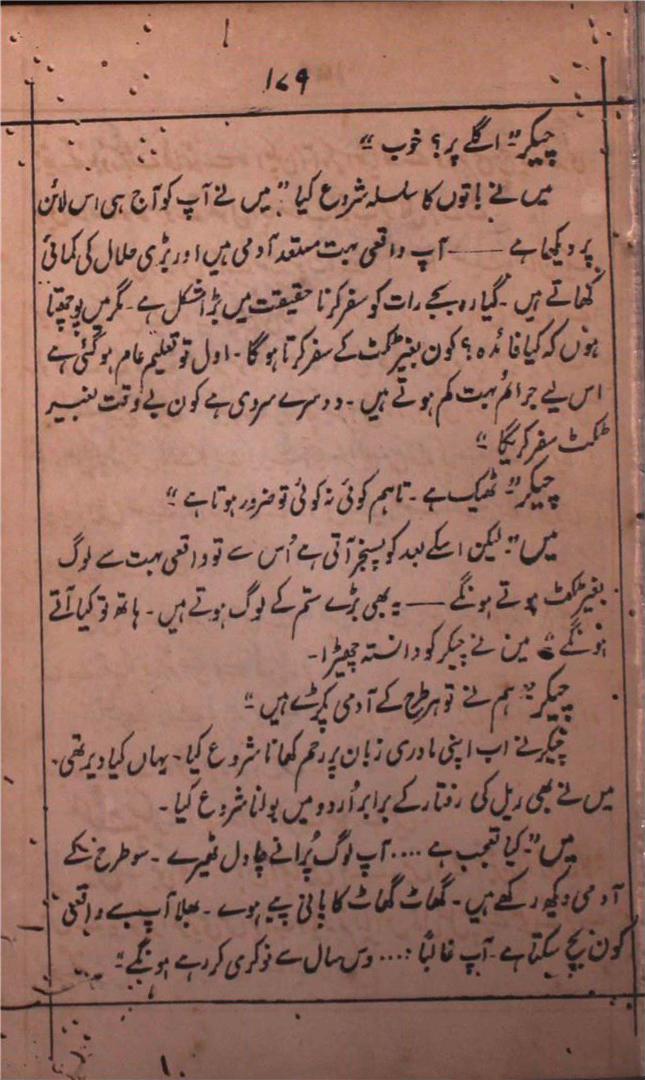 ۱۷۹
چیکر” اگلے پر؟ خوب “
میں نے باتوں کا سلسلہ شروع کیا ” میں نے آپ کو آج ہی اس لائن
پر دیکھا ہے —— آپ واقعی بہت مستعد آدمی ہیں اور بڑی حلال کی کمائی
کھاتے ہیں ۔ گیارہ بجے رات کو سفر کرنا حقیقت میں بڑا مشکل ہے ۔ مگر میں پوچھتا
ہوں کہ کیا فائدہ؟ کون بغیر ٹکٹ کے سفر کرتا ہوگا ۔ اول تو تعلیم عام ہوگئی ہے
اس لیے جرائم بہت کم ہوتے ہیں ۔ دوسرے سردی ہے کون بے وقت بغیر
ٹکٹ سفر کریگا “
چیکر” ٹھیک ہے ۔ تاہم کوئی نہ کوئی تو ضرور ہوتا ہے “
میں ” لیکن اسکے بعد کو پسنجر آتی ہے اُس سے تو واقعی بہت سے لوگ
بغیر ٹکٹ ہوتے ہونگے —— یہ بھی بڑے ستم کے لوگ ہوتے ہیں ۔ ہاتھ تو کیا آتے
ہونگے “ مین نے چیکر کو دانستہ چھیڑا ۔
چیکر” ہم نے تو ہر طرح کے آدمی پکڑے ہیں “
چیکر نے اب اپنی مادری زبان پر رحم کھانا شروع کیا ۔ یہاں کیا دیر تھی ۔
میں نے بھی ریل کی رفتار کے برابر اُردو میں بولنا شروع کیا ۔
میں ” کیا تعجب ہے .... آپ لوگ پُرانے چاول ٹھیرے ۔ سو طرح کے
آدمی دیکھ رکھے ہیں ۔ گھاٹ گھاٹ کا پانی پیے ہوے ۔ بھلا آپ سے واقعی
کون بچ سکتا ہے ۔ آپ غالباً .... دس سال سے نوکری کر رہے ہونگے “